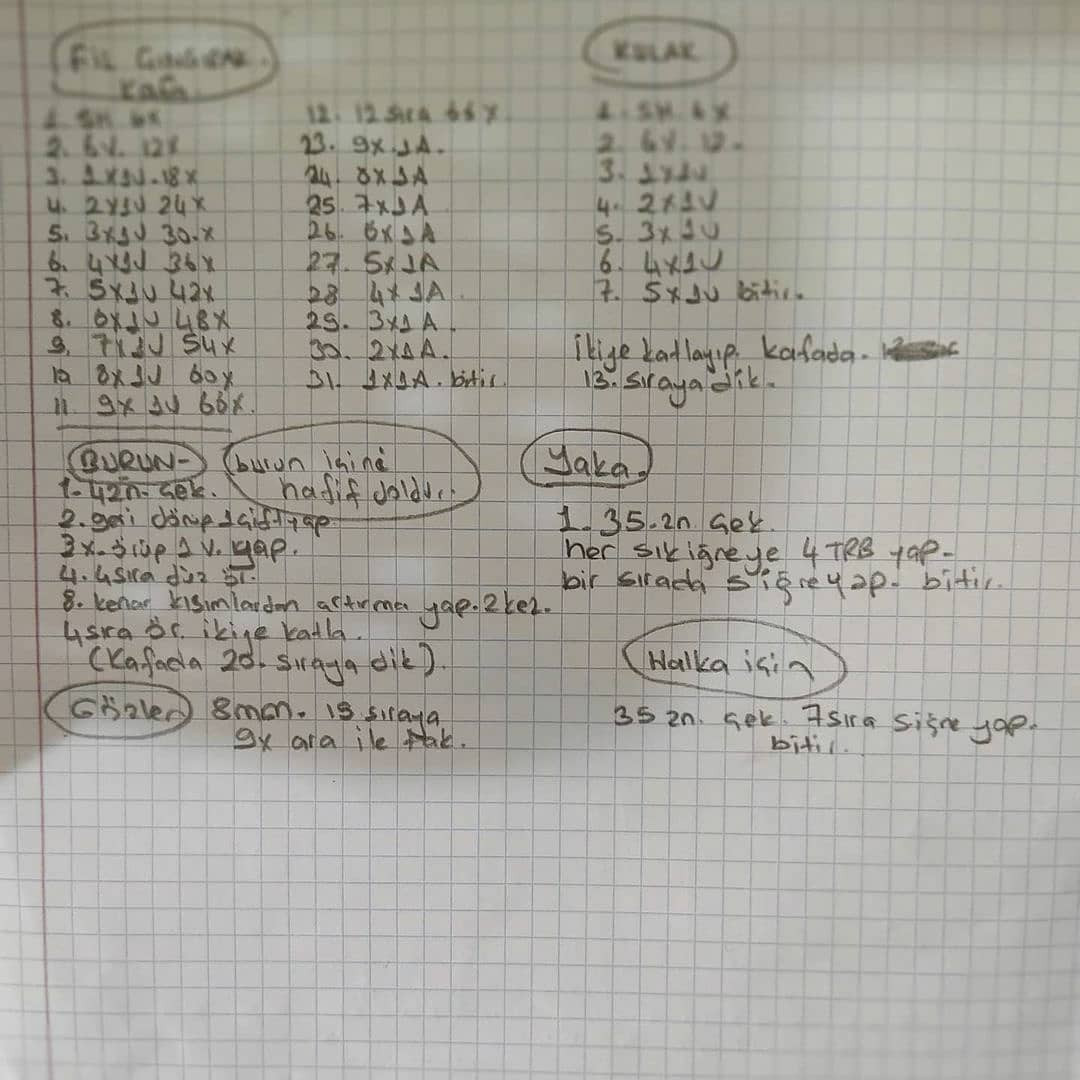 FİL ÇINGIRAK
Kafa
1. SH 6X
2. 6V. 12X
3. 1X1V-18X
4. 2X1V 24X
5. 3X1V 30.X
6. 4X1V 36X
7. 5X1V 42X
8. 6X1V 48X
9. 7X1V 54X
10 8X1V 60X
11. 9X 1V 66X.
12. 12 sıra 66X
23. 9X.1A.
24. 8X1A
25. 7X1A
26. 6X1A
27. 5X1A
28 4X1A.
29. 3X1A.
30. 2X1A.
31. 1X1A. bitir.
KULAK
1. SH. 6X
2. 6V. 12.
3. 1X1V
4. 2X1V
5. 3X1V
6. 4X1V
7. 5X1V bitir.
İkiye katlayıp kafada.
13. sıraya dik.
BURUN- (burun içine
hafif doldur.
1-42n. çek.
2. geri dönüp 1 çift yap
3x. örüp 1 V. yap.
4. 4 sıra düz ör.
8. kenar kısımlardan artırma yap. 2 kez.
4 sıra ör. ikiye katla.
(Kafada 20. sıraya dik).
Gözler 8mm. 19 sıraya
9x ara ile tak.
Yaka.
1. 35.zn. çek.
her sık iğneye 4 TRB yap-
bir sırada s iğne yap- bitir.
Halka için
35 zn. çek. 7 sıra s iğne yap.
bitir.